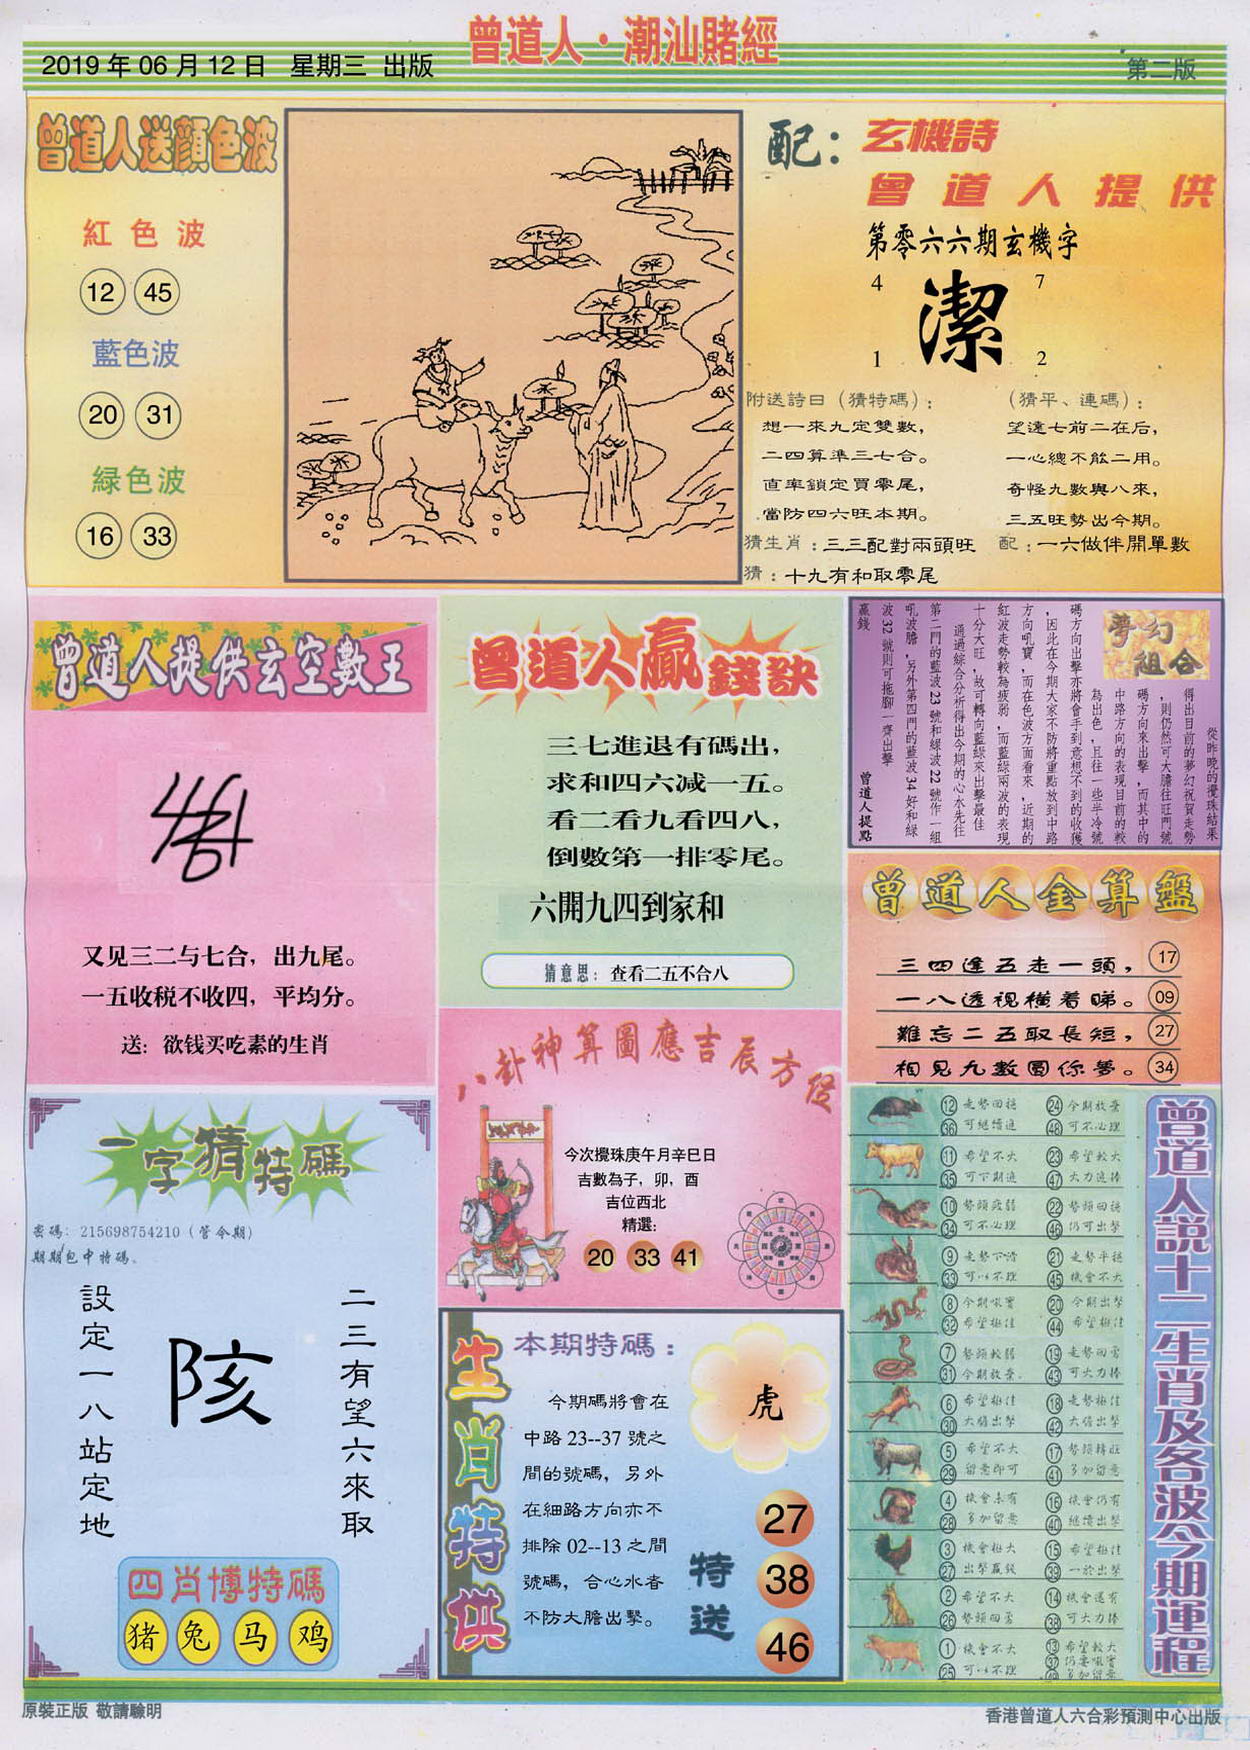 曾道人·潮汕賭經
2019年06月12日 星期三 出版
第二版
曾道人送顔色波
紅色波
12 45
藍色波
20 31
緑色波
16 33
配：
玄機詩
曾道人提供
第零六六期玄機字
4 7
潔
1 2
附送詩曰（猜特碼）：
想一來九定雙數，
二四算準三七合。
直率鎖定買零尾，
當防四六旺本期。
（猜平、連碼）：
望遠七前二在后，
一心總不能二用。
奇怪九數與八來，
三五旺勢出今期。
猜生肖：三三配對兩頭旺 配：一六做伴開單數
猜：十九有和取零尾
曾道人提供玄空數王
又见三二与七合，出九尾。
一五收税不收四，平均分。
送：欲钱买吃素的生肖
曾道人贏錢訣
三七進退有碼出，
求和四六减一五。
看二看九看四八，
倒數第一排零尾。
六開九四到家和
猜意思：查看二五不合八
夢幻
組合
從昨晚的攪珠結果
得出目前的夢幻祝賀走勢
，則仍然可大膽往旺門號
碼方向來出擊，而其中的
中路方向的表現目前的較
為出色，且往一些半冷號
碼方向出擊亦將會手到意想不到的收獲
，因此在今期大家不防將重點放到中路
方向吼寶，而在色波方面看來，近期的
紅波走勢較為疲弱，而藍緑兩波的表現
十分大旺，故可轉向藍緑來出擊最佳
通過綜合分析得出今期的心水先往
第二門的藍波23號和緑波22號作一組
吼波膽，另外第四門的藍波34好和緑
波32號則可拖腳一齊出擊
贏錢 曾道人提點
曾道人金算盤
三四逢五走一頭，17
一八透視橫着睇。09
難忘二五取長短，27
相見九數圓你夢。34
一字猜特碼
密碼：215698754210（管令期）
期期包中特碼。
設定一八站定地
陔
二三有望六來取
四肖博特碼
猪 兔 马 鸡
八卦神算圖應吉辰方位
今次攪珠庚午月辛巳日
吉數為子，卯，酉
吉位西北
精選：
20 33 41
生肖特供
本期特碼：
今期碼將會在
中路23--37號之
間的號碼，另外
在細路方向亦不
排除02--13之間
號碼，合心水者
不防大膽出擊。
虎
特送
27
38
46
曾道人説十二生肖及各波今期運程
12 走勢回穩 24 今期放棄
36 可繼續追 48 可不必理
11 希望不大 23 希望較大
35 可下期追 47 大力追捧
10 勢頭疲弱 22 勢頭回穩
34 可不必理 46 仍可出擊
9 走勢下滑 21 走勢平穩
33 可以不理 45 機會不大
8 今期吼寶 20 今期出擊
32 希望極佳 44 希望極佳
7 勢頭較弱 19 走勢回勇
31 今期放棄 43 可大力捧
6 希望極佳 18 走勢極佳
30 大膽出擊 42 大膽出擊
5 希望不大 17 勢頭轉旺
29 留意即可 41 多加留意
4 機會未有 16 機會仍有
28 多加留意 40 繼續出擊
3 機會極大 15 希望極佳
27 出擊贏錢 39 一於出擊
2 希望不大 14 機會還有
26 勢頭回勇 38 可大力捧
1 機會不大 13 希望較大
25 可以不理 37 仍要吼實
49 多加留意
原裝正版 敬請驗明
香港曾道人六合彩預測中心出版